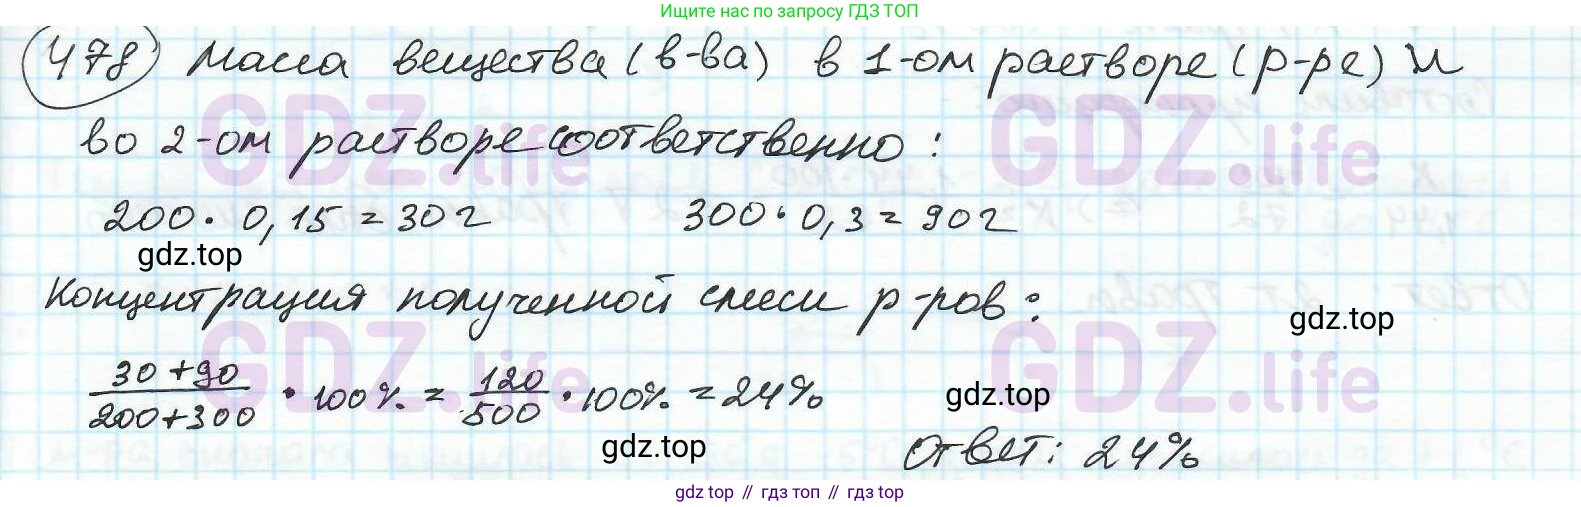 Ищите нас по запросу ГДЗ ТОП
478 Масса вещества (в-ва) в 1-ом растворе (р-ре) и
во 2-ом растворе соответственно:
200 · 0,15 = 30 г 300 · 0,3 = 90 г
gdz.top
Концентрация полученной смеси р-ров:
gdz.top
30 + 90 / 200 + 300 · 100% = 120 / 500 · 100% = 24%
gdz.top
gdz.top
Ответ: 24%
GDZ.life
GDZ.life
GDZ.life
GDZ.life
gdz top // гдз топ // гдз top